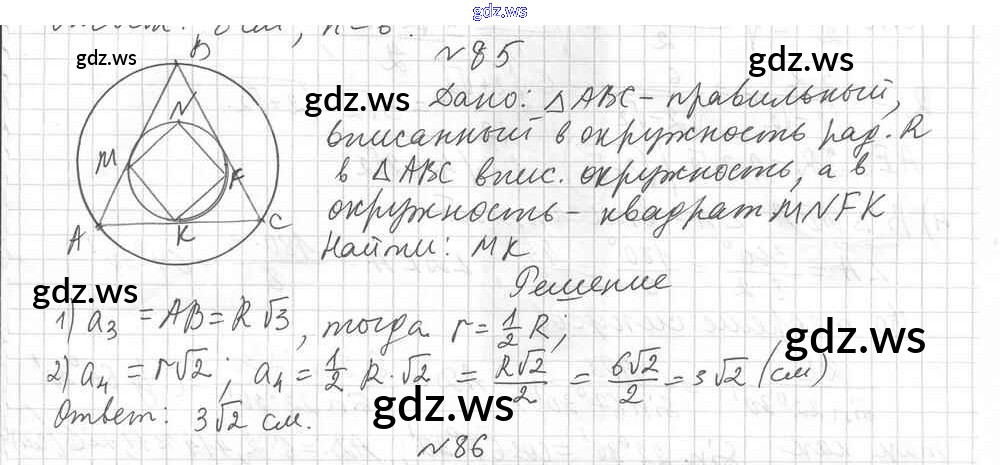 gdz.ws
n = 6.
№85
gdz.ws
gdz.ws
gdz.ws
B
N
M
F
A
K
C
Дано: △ABC - правильный,
вписанный в окружность рад. R
в △ABC впис. окружность, а в
окружность - квадрат MNFK
Найти: MK
Решение
gdz.ws
1) a₃ = AB = R√3, тогда r = 1/2 R;
gdz.ws
2) a₄ = r√2; a₄ = 1/2 R·√2 = R√2/2 = 6√2/2 = 3√2 (см)
gdz.ws
Ответ: 3√2 см.
№86